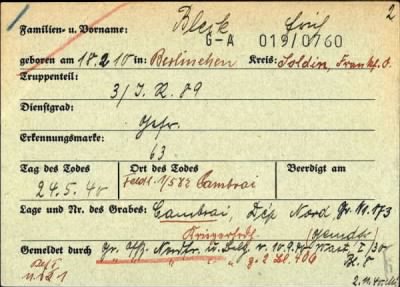 2
Familien- u. Vorname: Blesk Emil
G-A 019/0760
geboren am 18.2.10 in: Berlinchen Kreis: Soldin, Frankf. O.
Truppenteil:
3/J. R. 89
Dienstgrad:
Gefr.
Erkennungsmarke:
63
Tag des Todes Ort des Todes Beerdigt am
24.5.40 Feldl. 1/582 Cambrai
Lage und Nr. des Grabes: Cambrai, Dép Nord, Gr. Nr. 173
Kriegerfrdh.
Gemeldet durch Gr. Offz. Nordfr. u. Belg. v. 10.9.40
g. 2 Bl. 406
2.11.40